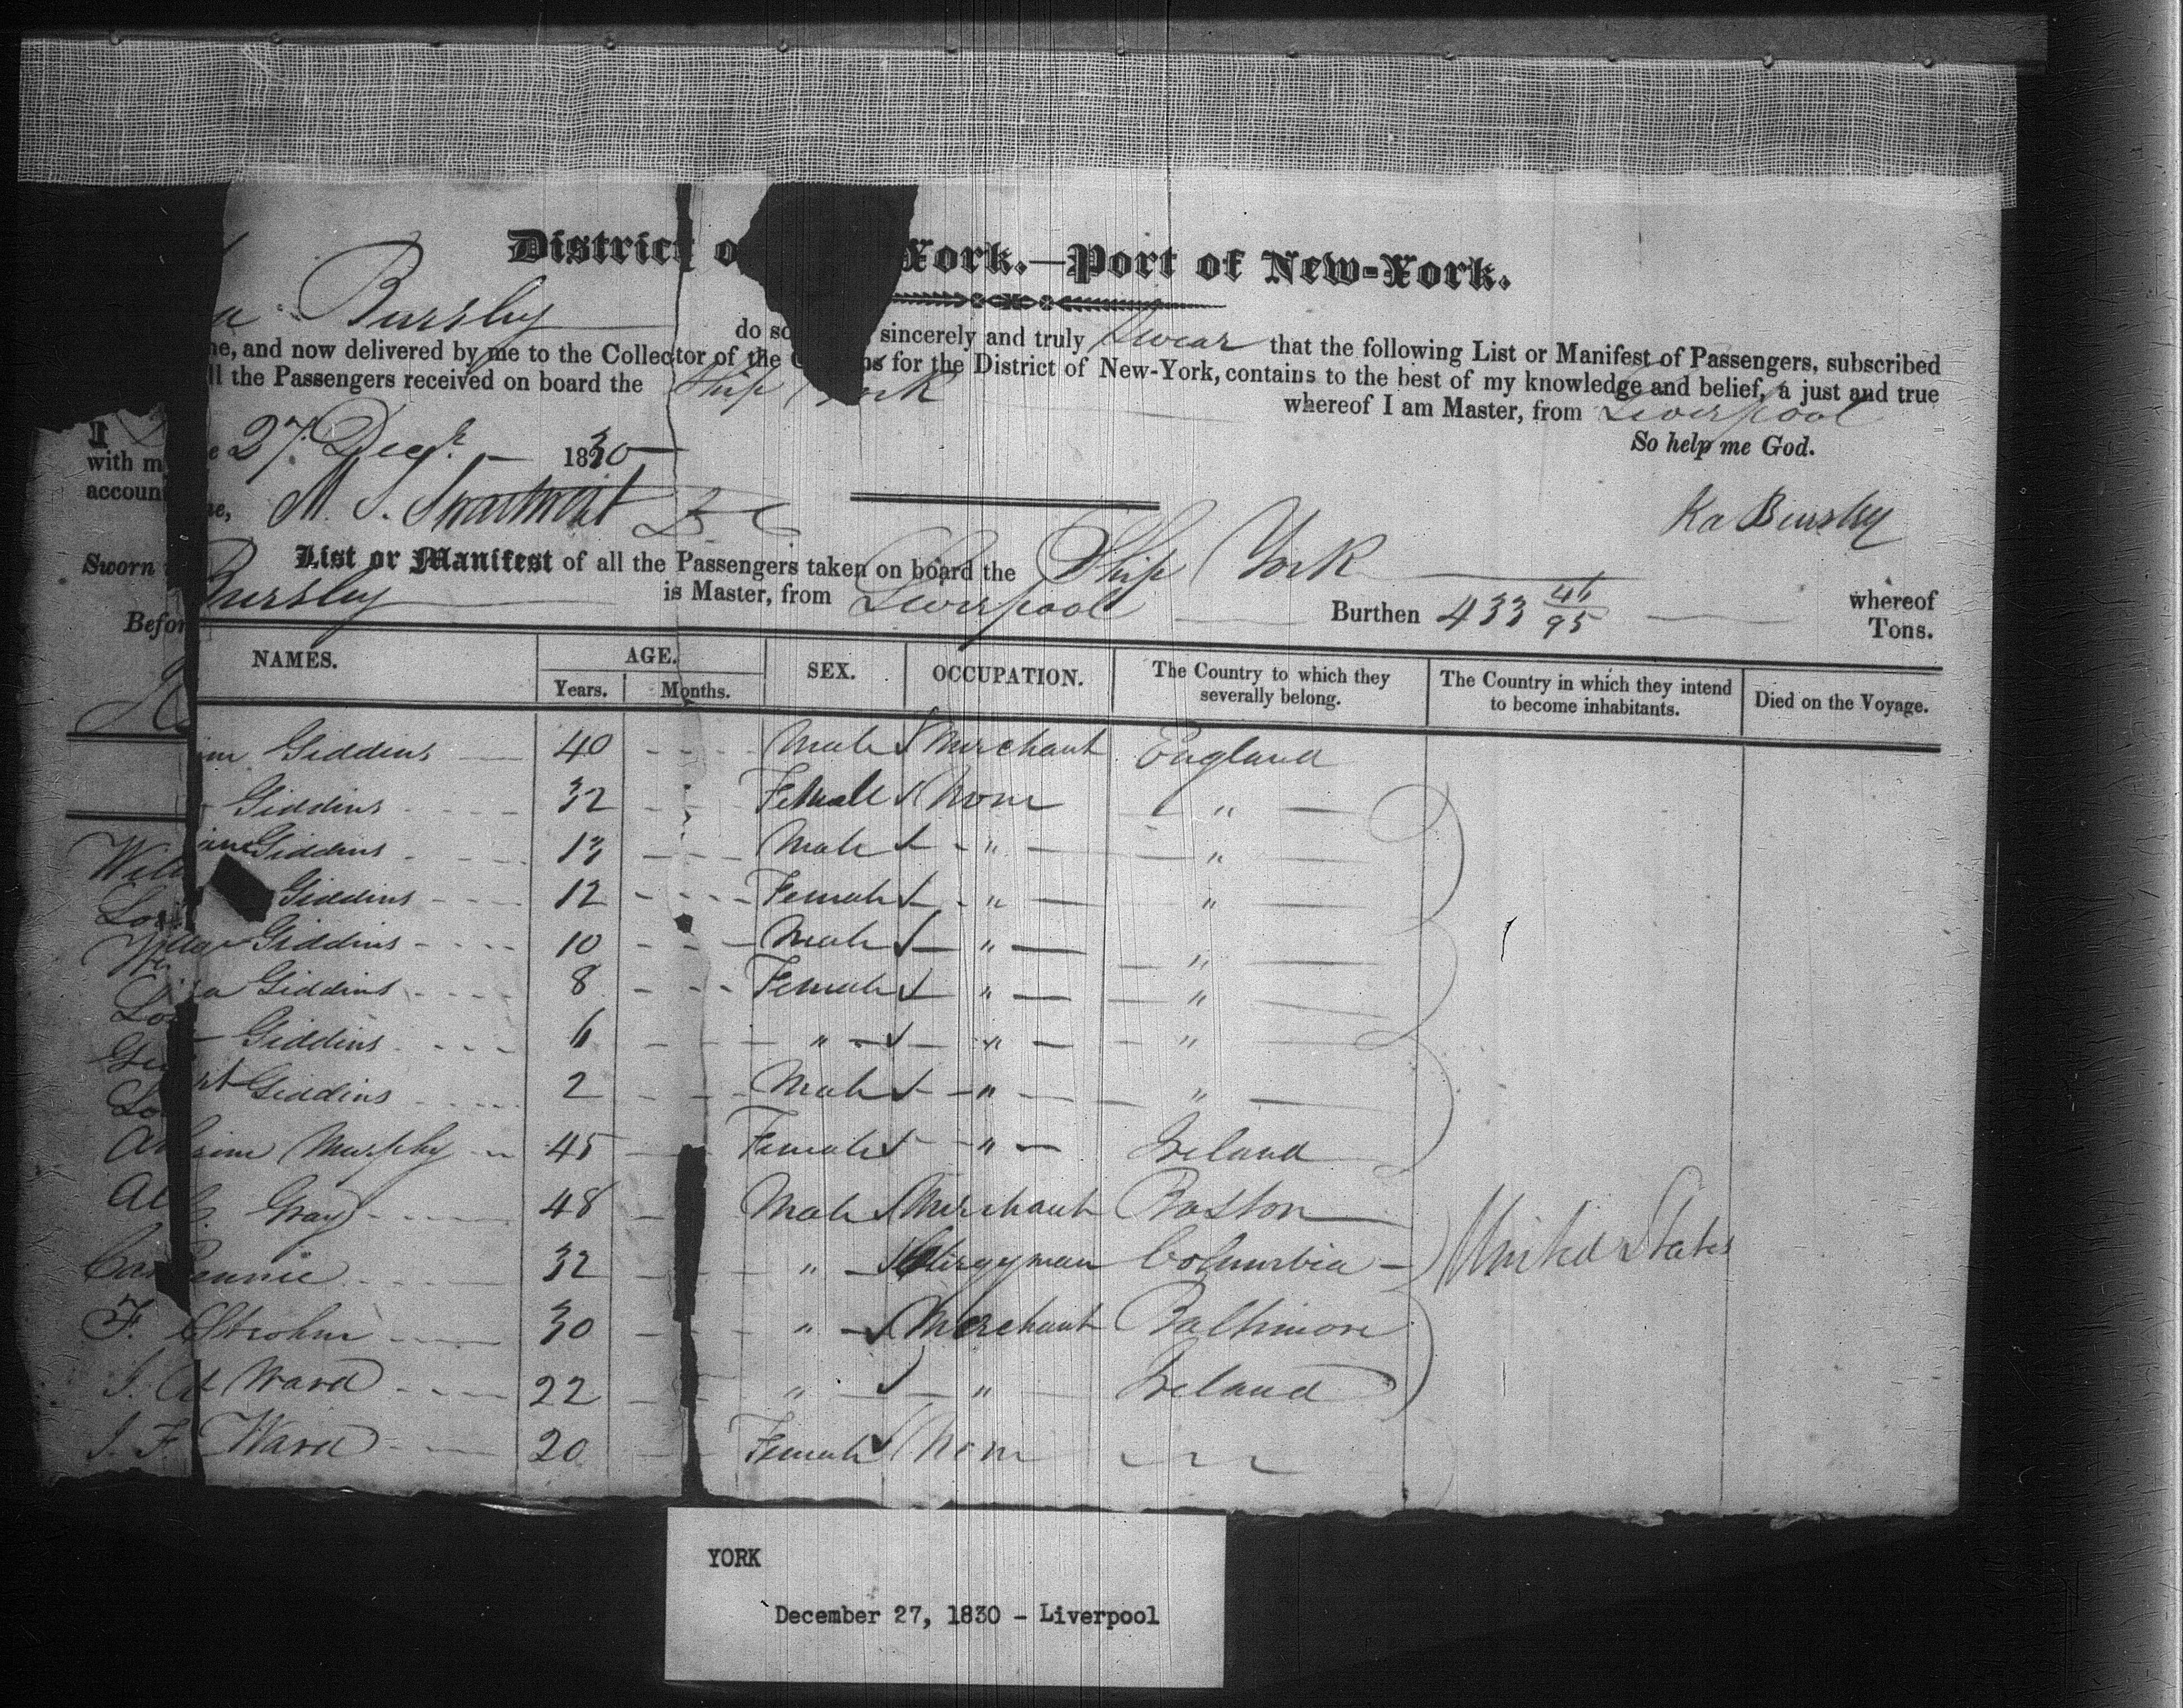 District o York.—Port of New-York.
Bursley do so sincerely and truly Swear that the following List or Manifest of Passengers, subscribed
and now delivered by me to the Collector of the for the District of New-York, contains to the best of my knowledge and belief, a just and true
with m ll the Passengers received on board the Ship York whereof I am Master, from Liverpool
account So help me God.
27 Decr. 1830
M. S. Swartwout Ka Bursley
Sworn
Befor
List or Manifest of all the Passengers taken on board the Ship York whereof
Bursley is Master, from Liverpool Burthen 433 46/95 Tons.
NAMES. AGE. SEX. OCCUPATION. The Country to which they severally belong. The Country in which they intend to become inhabitants. Died on the Voyage.
Years. Months.
Giddins 40 Male Merchant England
Giddins 32 Female None "
Giddins 13 Male " "
Giddins 12 Female " "
Giddins 10 Male " "
Giddins 8 Female " "
Giddins 6 " " "
Giddins 2 Male " "
Murphy 45 Female " Ireland
Gray 48 Male Merchant Boston
32 " Clergyman Columbia United States
F. Strohm 30 " Merchant Baltimore
Ward 22 " " Ireland
J. F. Ward 20 Female None
YORK
December 27, 1830 - Liverpool